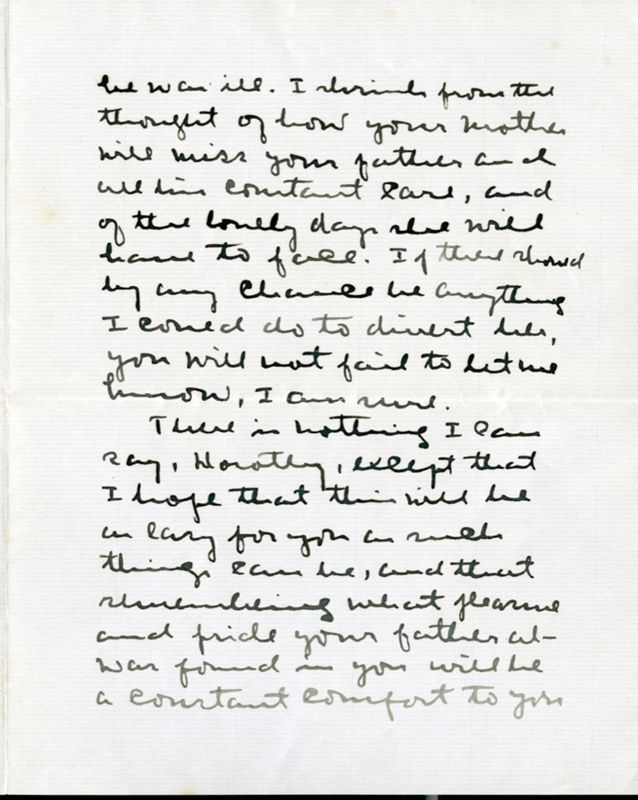 he was ill. I shrink from the
thought of how your mother
will miss your father and
all his constant care, and
of the lonely days she will
have to face. If there should
by any chance be anything
I could do to divert her,
you will not fail to let me
know, I am sure.
There is nothing I can
say, Dorothy, except that
I hope that this will be
as easy for you as such
things can be, and that
remembering what pleasure
and pride your father al-
ways found in you will be
a constant comfort to you